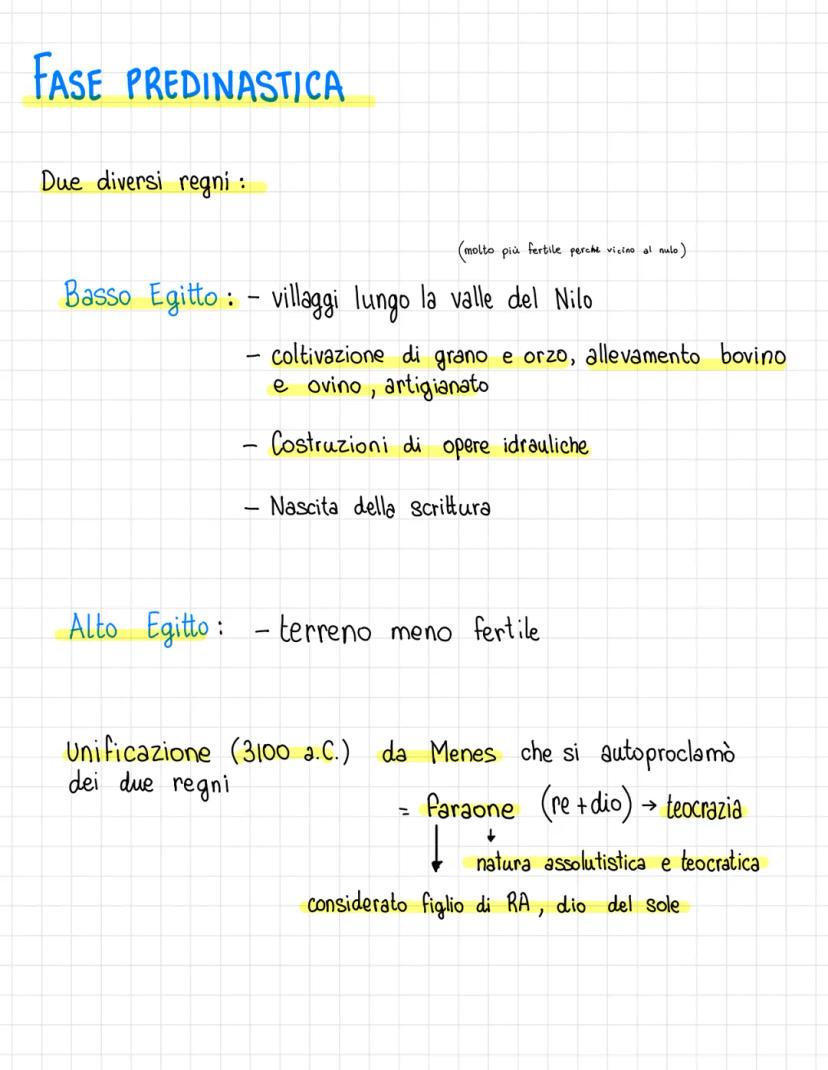 FASE PREDINASTICA
Due diversi regni :
(molto più fertile perché vicino al nulo)
Basso Egitto : - villaggi lungo la valle del Nilo
- coltivazione di grano e orzo, allevamento bovino
e ovino, artigianato
- Costruzioni di opere idrauliche
- Nascita della scrittura
Alto Egitto : - terreno meno fertile
Unificazione (3100 a.C.) da Menes che si autoproclamò
dei due regni
= faraone (re + dio) → teocrazia
natura assolutistica e teocratica
considerato figlio di RA, dio del sole